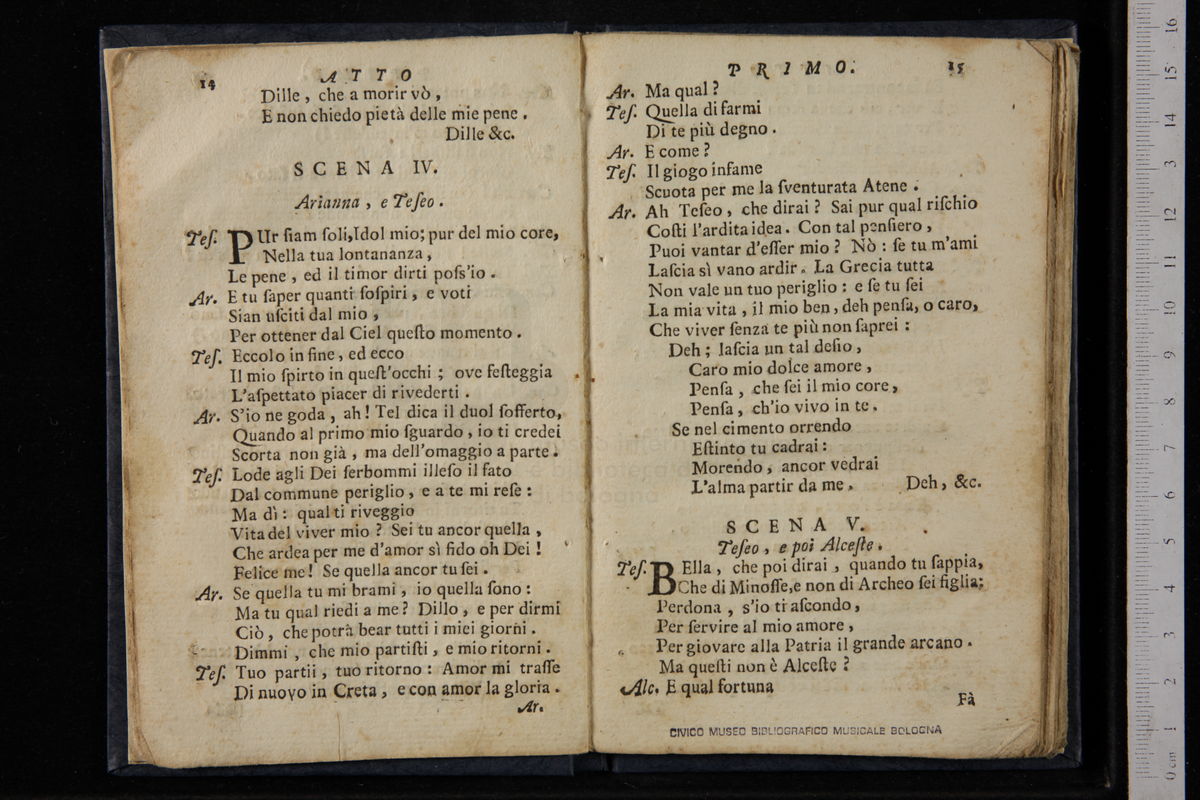 14 ATTO
Dille, che a morir vò,
E non chiedo pietà delle mie pene.
Dille &c.
SCENA IV.
Arianna, e Teſeo.
Teſ. PUr ſiam ſoli, Idol mio; pur del mio core,
Nella tua lontananza,
Le pene, ed il timor dirti poſs'io.
Ar. E tu ſaper quanti ſoſpiri, e voti
Sian uſciti dal mio,
Per ottener dal Ciel queſto momento.
Teſ. Eccolo in fine, ed ecco
Il mio ſpirto in queſt'occhi; ove feſteggia
L'aſpettato piacer di rivederti.
Ar. S'io ne goda, ah! Tel dica il duol ſofferto,
Quando al primo mio ſguardo, io ti credei
Scorta non già, ma dell'omaggio a parte.
Teſ. Lode agli Dei ſerbommi illeſo il fato
Dal commune periglio, e a te mi reſe:
Ma dì: qual ti riveggio
Vita del viver mio? Sei tu ancor quella,
Che ardea per me d'amor sì fido oh Dei!
Felice me! Se quella ancor tu ſei.
Ar. Se quella tu mi brami, io quella ſono:
Ma tu qual riedi a me? Dillo, e per dirmi
Ciò, che potrà bear tutti i miei giorni.
Dimmi, che mio partiſti, e mio ritorni.
Teſ. Tuo partii, tuo ritorno: Amor mi traſſe
Di nuovo in Creta, e con amor la gloria.
Ar.
PRIMO. 15
Ar. Ma qual?
Teſ. Quella di farmi
Di te più degno.
Ar. E come?
Teſ. Il giogo infame
Scuota per me la ſventurata Atene.
Ar. Ah Teſeo, che dirai? Sai pur qual riſchio
Coſti l'ardita idea. Con tal penſiero,
Puoi vantar d'eſſer mio? Nò: ſe tu m'ami
Laſcia sì vano ardir. La Grecia tutta
Non vale un tuo periglio: e ſe tu ſei
La mia vita, il mio ben, deh penſa, o caro,
Che viver ſenza te più non ſaprei:
Deh; laſcia un tal deſio,
Caro mio dolce amore,
Penſa, che ſei il mio core,
Penſa, ch'io vivo in te.
Se nel cimento orrendo
Eſtinto tu cadrai:
Morendo, ancor vedrai
L'alma partir da me. Deh, &c.
SCENA V.
Teſeo, e poi Alceſte.
Teſ. BElla, che poi dirai, quando tu ſappia,
Che di Minoſſe, e non di Archeo ſei figlia;
Perdona, s'io ti aſcondo,
Per ſervire al mio amore,
Per giovare alla Patria il grande arcano.
Ma queſti non è Alceſte?
Alc. E qual fortuna
Fà
CIVICO MUSEO BIBLIOGRAFICO MUSICALE BOLOGNA
0 cm 1 2 3 4 5 6 7 8 9 10 11 12 13 14 15 16